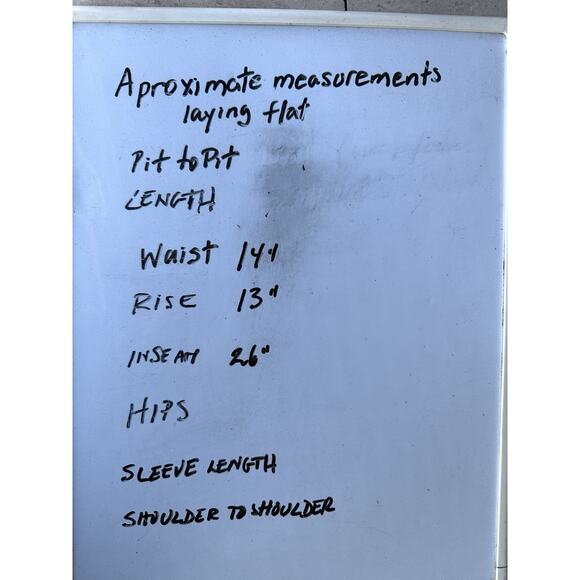 Aproximate measurements
laying flat
Pit to Pit
LENGTH
Waist 14"
RISE 13"
INSEAM 26"
HIPS
SLEEVE LENGTH
SHOULDER TO SHOULDER